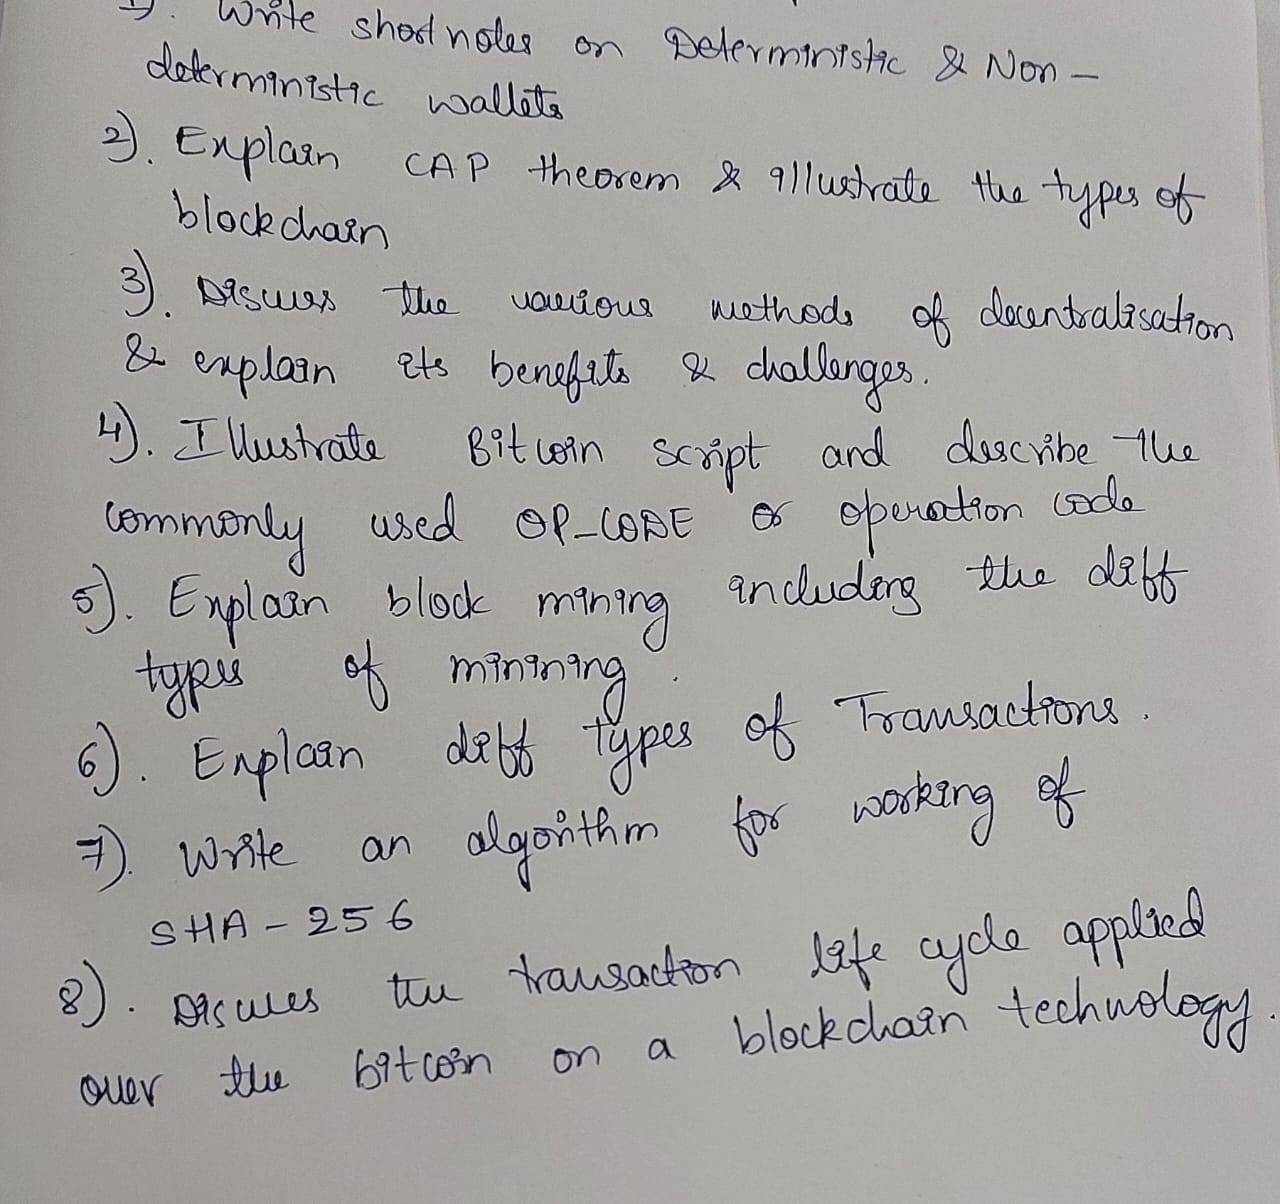 1). Write short notes on Deterministic & Non -
deterministic wallets
2). Explain CAP theorem & illustrate the types of
blockchain
3). Discuss the various methods of decentralisation
& explain its benefits & challenges.
4). Illustrate Bitcoin script and describe the
commonly used OP-CODE or operation code
5). Explain block mining including the diff
types of minining.
6). Explain diff types of Transactions.
7). Write an algorithm for working of
SHA - 256
8). Discuss the transaction life cycle applied
over the bitcoin on a blockchain technology.